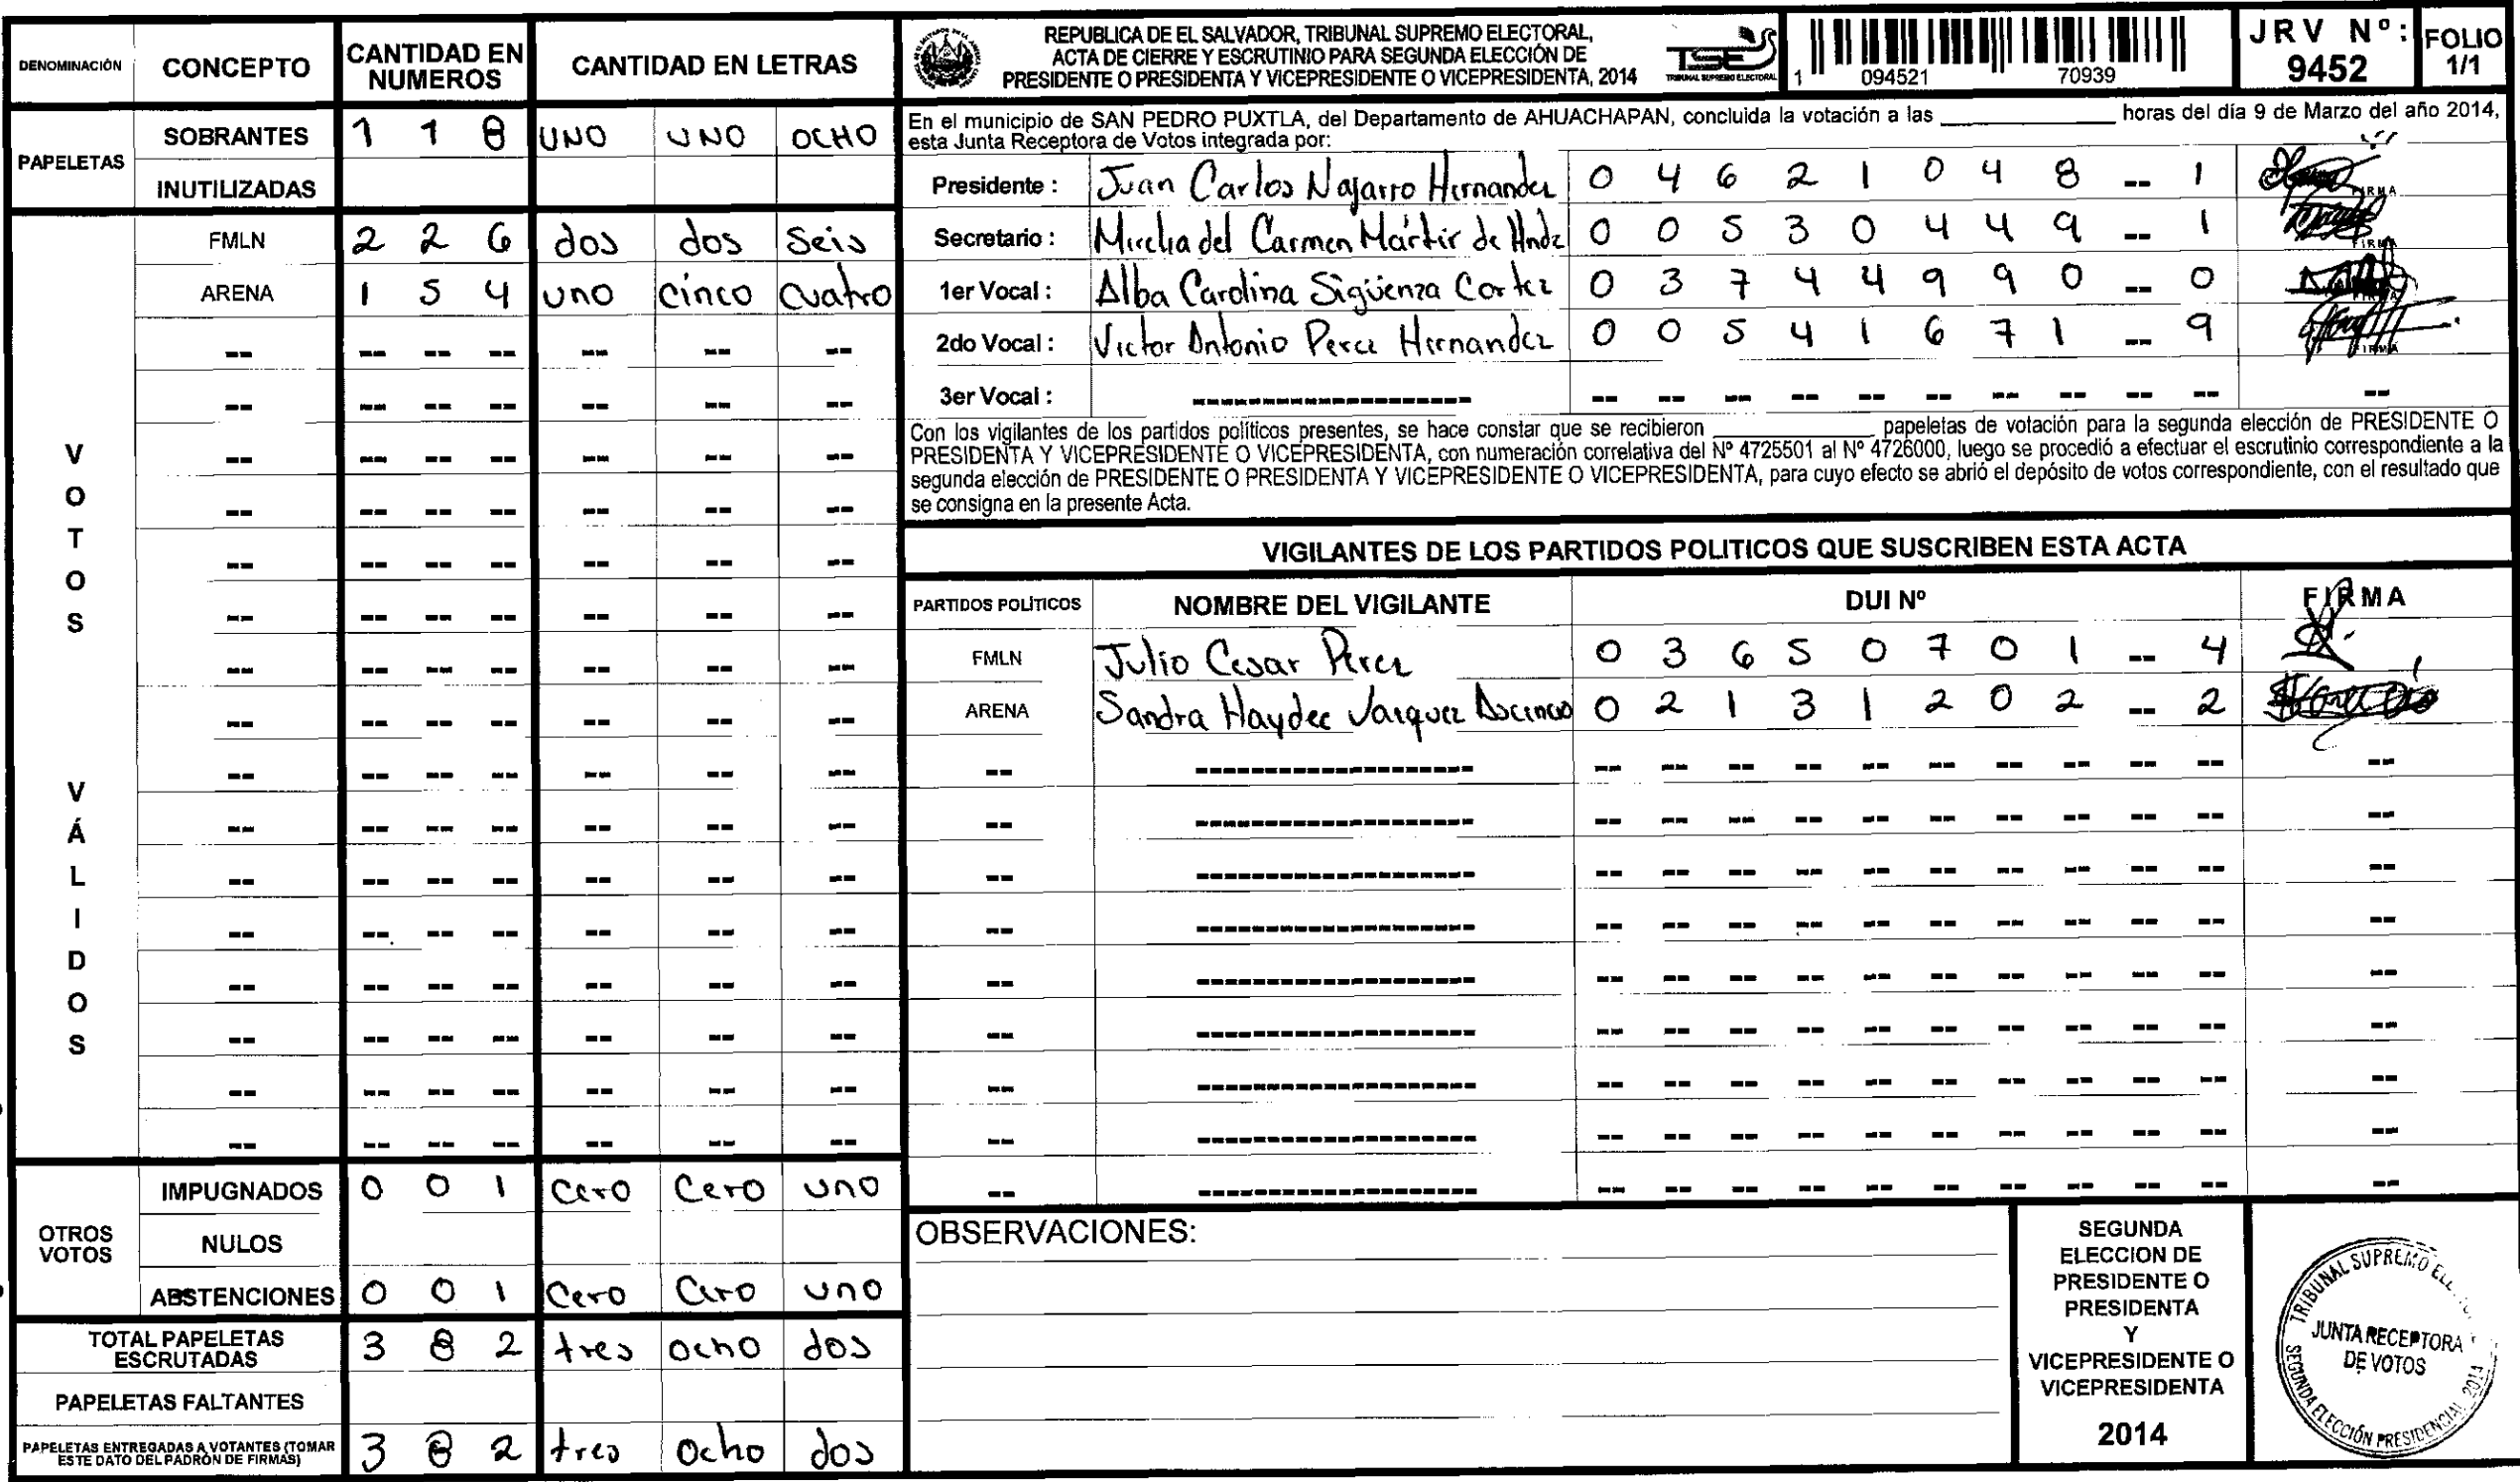 DENOMINACIÓN CONCEPTO CANTIDAD EN NUMEROS CANTIDAD EN LETRAS
PAPELETAS
SOBRANTES 1 1 8 UNO UNO OCHO
INUTILIZADAS
VOTOS VÁLIDOS
FMLN 2 2 6 dos dos seis
ARENA 1 5 4 uno cinco cuatro
OTROS VOTOS
IMPUGNADOS 0 0 1 Cero Cero uno
NULOS
ABSTENCIONES 0 0 1 Cero Cero uno
TOTAL PAPELETAS ESCRUTADAS 3 8 2 tres ocho dos
PAPELETAS FALTANTES
PAPELETAS ENTREGADAS A VOTANTES (TOMAR ESTE DATO DEL PADRÓN DE FIRMAS) 3 8 2 tres ocho dos
REPUBLICA DE EL SALVADOR, TRIBUNAL SUPREMO ELECTORAL,
ACTA DE CIERRE Y ESCRUTINIO PARA SEGUNDA ELECCIÓN DE
PRESIDENTE O PRESIDENTA Y VICEPRESIDENTE O VICEPRESIDENTA, 2014
TSE
TRIBUNAL SUPREMO ELECTORAL
1 094521 70939
JRV Nº: 9452
FOLIO 1/1
En el municipio de SAN PEDRO PUXTLA, del Departamento de AHUACHAPAN, concluida la votación a las ____ horas del día 9 de Marzo del año 2014,
esta Junta Receptora de Votos integrada por:
Presidente : Juan Carlos Najarro Hernandez 0 4 6 2 1 0 4 8 -- 1 FIRMA
Secretario : del Carmen Mártir de Hndz 0 0 5 3 0 4 4 9 -- 1 FIRMA
1er Vocal : Alba Carolina Sigüenza Cortez 0 3 7 4 4 9 9 0 -- 0 FIRMA
2do Vocal : Victor Antonio Perez Hernandez 0 0 5 4 1 6 7 1 -- 9 FIRMA
3er Vocal :
Con los vigilantes de los partidos políticos presentes, se hace constar que se recibieron ____ papeletas de votación para la segunda elección de PRESIDENTE O
PRESIDENTA Y VICEPRESIDENTE O VICEPRESIDENTA, con numeración correlativa del Nº 4725501 al Nº 4726000, luego se procedió a efectuar el escrutinio correspondiente a la
segunda elección de PRESIDENTE O PRESIDENTA Y VICEPRESIDENTE O VICEPRESIDENTA, para cuyo efecto se abrió el depósito de votos correspondiente, con el resultado que
se consigna en la presente Acta.
VIGILANTES DE LOS PARTIDOS POLITICOS QUE SUSCRIBEN ESTA ACTA
PARTIDOS POLÍTICOS NOMBRE DEL VIGILANTE DUI Nº FIRMA
FMLN Julio Cesar Perez 0 3 6 5 0 7 0 1 -- 4
ARENA Sandra Haydee Vasquez 0 2 1 3 1 2 0 2 -- 2
OBSERVACIONES:
SEGUNDA
ELECCION DE
PRESIDENTE O
PRESIDENTA
Y
VICEPRESIDENTE O
VICEPRESIDENTA
2014
TRIBUNAL SUPREMO
JUNTA RECEPTORA
DE VOTOS
SEGUNDA ELECCIÓN PRESIDENCIAL 2014